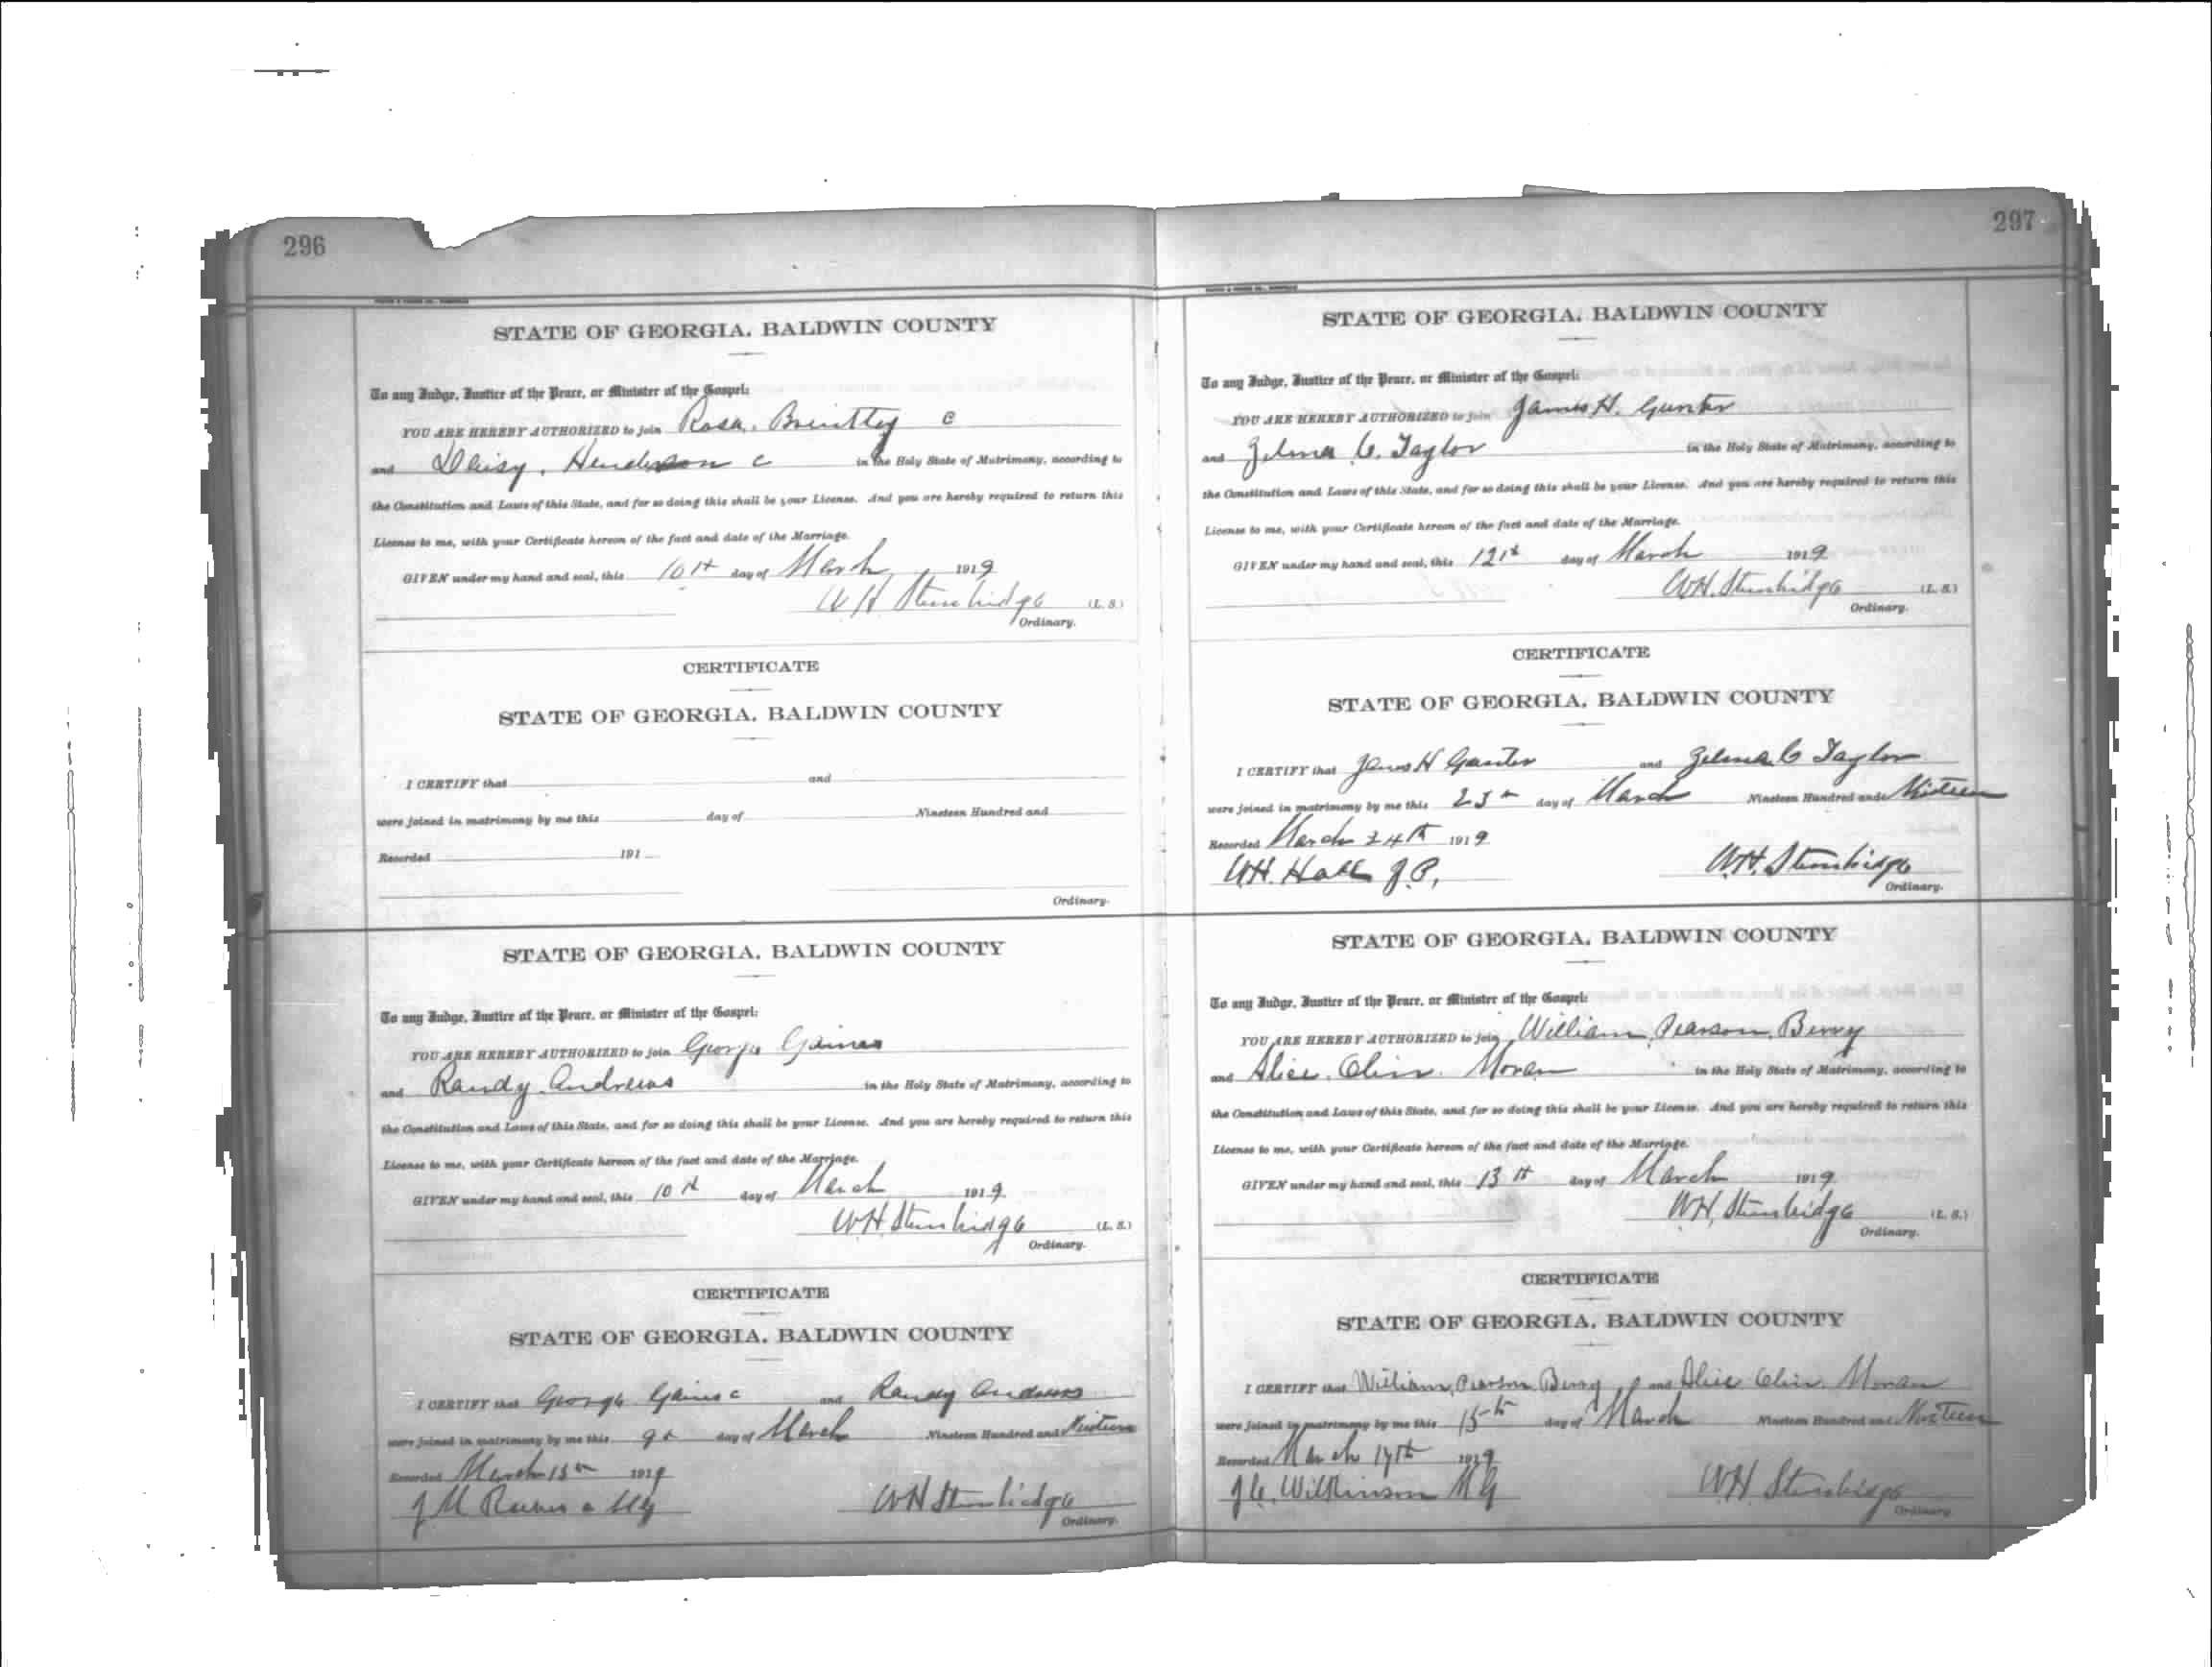 296
STATE OF GEORGIA, BALDWIN COUNTY
To any Judge, Justice of the Peace, or Minister of the Gospel:
YOU ARE HEREBY AUTHORIZED to join Rosa. Brintley c
and Daisy. Henderson c in the Holy State of Matrimony, according to
the Constitution and Laws of this State, and for so doing this shall be your License. And you are hereby required to return this
License to me, with your Certificate hereon of the fact and date of the Marriage.
GIVEN under my hand and seal, this 10th day of March 1919
W H Stembridge (L. S.)
Ordinary.
CERTIFICATE
STATE OF GEORGIA, BALDWIN COUNTY
I CERTIFY that and
were joined in matrimony by me this day of Nineteen Hundred and
Recorded 191
Ordinary.
STATE OF GEORGIA, BALDWIN COUNTY
To any Judge, Justice of the Peace, or Minister of the Gospel:
YOU ARE HEREBY AUTHORIZED to join George Gaines
and Randy Andrews in the Holy State of Matrimony, according to
the Constitution and Laws of this State, and for so doing this shall be your License. And you are hereby required to return this
License to me, with your Certificate hereon of the fact and date of the Marriage.
GIVEN under my hand and seal, this 10th day of March 1919
WH Stembridge (L. S.)
Ordinary.
CERTIFICATE
STATE OF GEORGIA, BALDWIN COUNTY
I CERTIFY that George Gaines c and Randy Andrews
were joined in matrimony by me this 9th day of March Nineteen Hundred and Nineteen
Recorded March 15th 1919
J M MG WH Stembridge
Ordinary.
297
STATE OF GEORGIA, BALDWIN COUNTY
To any Judge, Justice of the Peace, or Minister of the Gospel:
YOU ARE HEREBY AUTHORIZED to join James H. Gunter
and Zelma C. Taylor in the Holy State of Matrimony, according to
the Constitution and Laws of this State, and for so doing this shall be your License. And you are hereby required to return this
License to me, with your Certificate hereon of the fact and date of the Marriage.
GIVEN under my hand and seal, this 12th day of March 1919
WH. Stembridge (L. S.)
Ordinary.
CERTIFICATE
STATE OF GEORGIA, BALDWIN COUNTY
I CERTIFY that James H Gunter and Zelma C Taylor
were joined in matrimony by me this 23th day of March Nineteen Hundred and Nineteen
Recorded March 24th 1919
WH. Hall J.P. WH. Stembridge
Ordinary.
STATE OF GEORGIA, BALDWIN COUNTY
To any Judge, Justice of the Peace, or Minister of the Gospel:
YOU ARE HEREBY AUTHORIZED to join William Pearson Berry
and Alice Moran in the Holy State of Matrimony, according to
the Constitution and Laws of this State, and for so doing this shall be your License. And you are hereby required to return this
License to me, with your Certificate hereon of the fact and date of the Marriage.
GIVEN under my hand and seal, this 13th day of March 1919
WH. Stembridge (L. S.)
Ordinary.
CERTIFICATE
STATE OF GEORGIA, BALDWIN COUNTY
I CERTIFY that William Pearson Berry and Alice Moran
were joined in matrimony by me this 15th day of March Nineteen Hundred and Nineteen
Recorded March 17th 1919
J.C. Wilkinson MG WH Stembridge
Ordinary